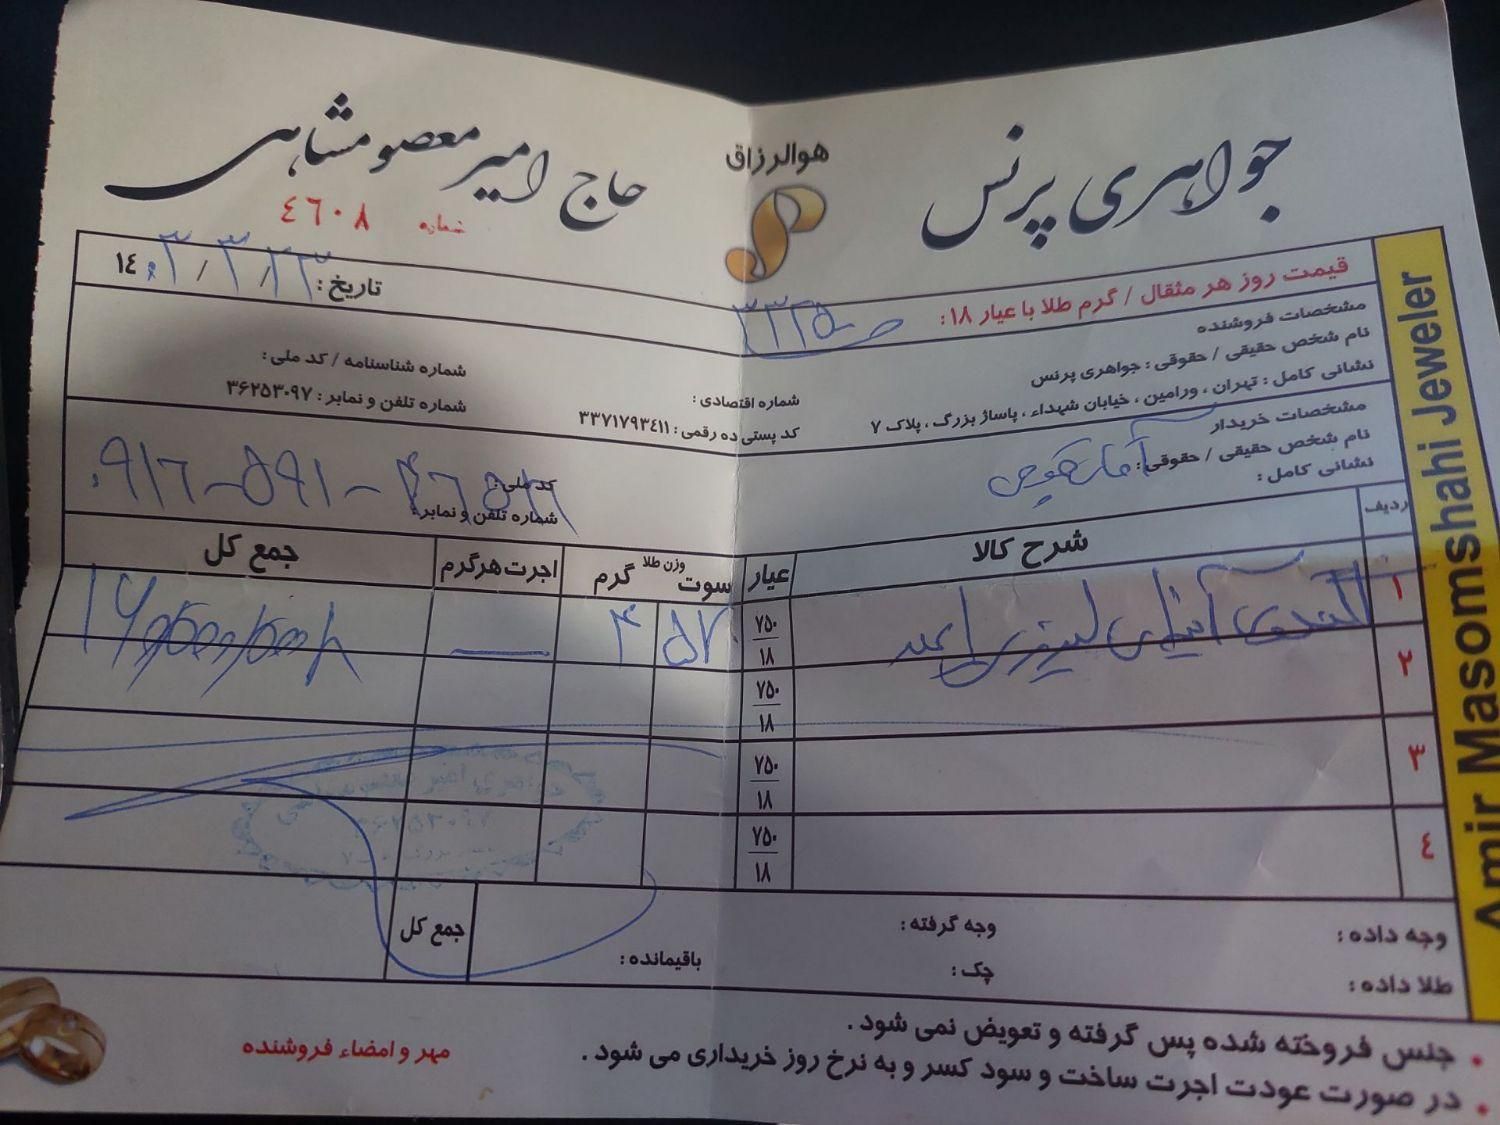 هوالرزاق
جواهری پرنس
حاج امیر معصومشاهی
شماره ٤٦٠٨
قیمت روز هر مثقال / گرم طلا با عیار ۱۸:
تاریخ: ۲۳ / ۳ / ۱٤۰۳
مشخصات فروشنده
نام شخص حقیقی / حقوقی: جواهری پرنس
شماره اقتصادی:
شماره شناسنامه / کد ملی:
نشانی کامل: تهران، ورامین، خیابان شهداء، پاساژ بزرگ، پلاک ۷
کد پستی ده رقمی: ۳۳۷۱۷۹۳٤۱۱
شماره تلفن و نمابر: ۳۶۲۵۳۰۹۷
مشخصات خریدار
نام شخص حقیقی / حقوقی: آقای
کد ملی:
نشانی کامل:
شماره تلفن و نمابر:
ردیف شرح کالا عیار وزن طلا سوت گرم اجرت هرگرم جمع کل
۱ النگوی ۷۵۰ ۱۸ ۵۲ ۴ —
۲ ۷۵۰ ۱۸
۳ ۷۵۰ ۱۸
٤ ۷۵۰ ۱۸
وجه داده:
وجه گرفته:
جمع کل
طلا داده:
چک:
باقیمانده:
• جنس فروخته شده پس گرفته و تعویض نمی شود.
• در صورت عودت اجرت ساخت و سود کسر و به نرخ روز خریداری می شود.
مهر و امضاء فروشنده
Amir Masomshahi Jeweler